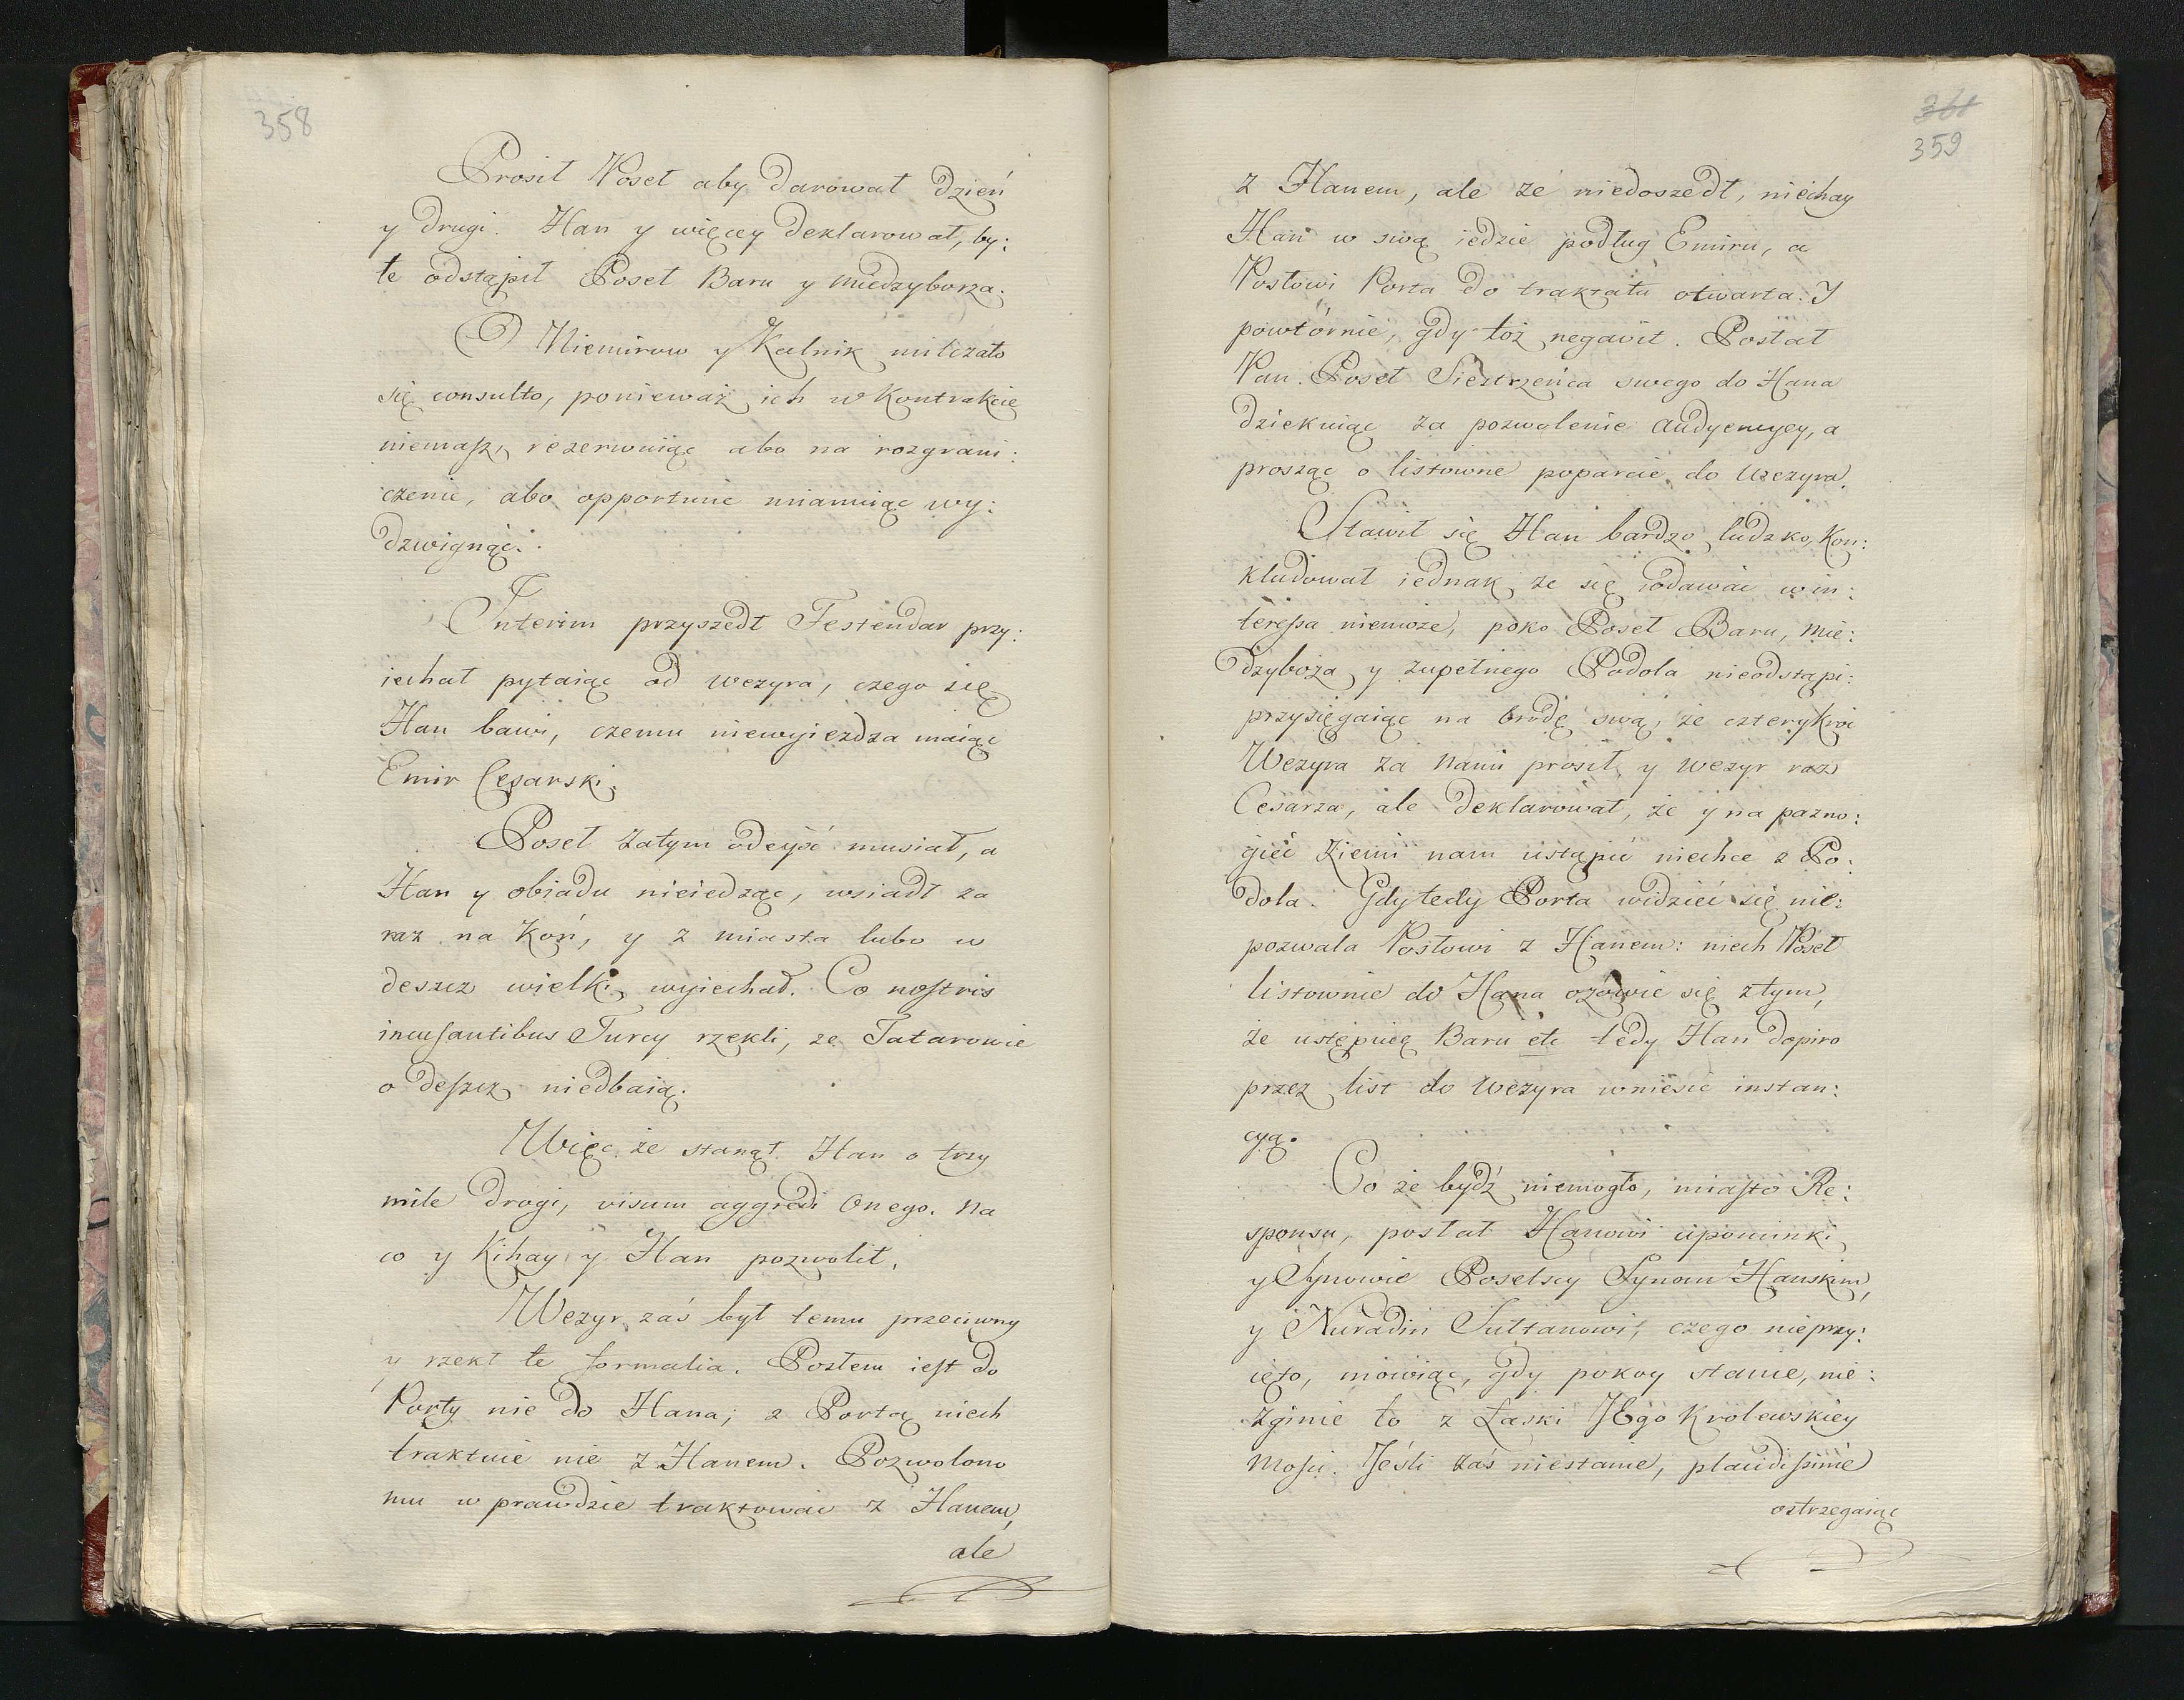 358
Prosił Poseł aby darował dzień
y drugi. Han y więcey deklarował, by:
łe odstąpił Poseł Baru y Miedzyborza.
O Niemirow y Kalnik milczało
się consulto, ponieważ ich w Kontrakcie
niemasz, rezerwuiąc abo na rozgrani:
czenie, abo opportune umawiąc wy:
dzwignąć.
Interim przyszedł Testendar przy:
iechał pytaiąc od Wezyra, czego się
Han bawi, czemu niewyiezdza maiąc
Emir Cesarski.
Poseł zatym odeyść musiał, a
Han y obiadu nieiedząc, wsiadł za
raz na Koń, y z miasta lubo w
deszcz wielki wyiechał. Co nostris
incusantibus Turcy rzekli, ze Tatarowie
o deszcz niedbaią.
Więc że stanął Han o trzy
mile drogi, visum aggredi Onego. Na
co y Kihay y Han pozwolił.
Wezyr zaś był temu przeciwny
y rzekł te formalia. Posłem iest do
Porty nie do Hana; z Portą niech
traktuie nie z Hanem. Pozwolono
mu w prawdzie traktować z Hanem,
ale
361
359
z Hanem, ale że niedoszedł, niechay
Han w swą iedzie podług Emiru, a
Posłowi Porta do traktatu otwarta. Y
powtórnie, gdy toż negavit. Posłał
Pan Poseł Siestrzeńca swego do Hana
dziekuiąc za pozwolenie audyencyey, a
prosząc o listowne poparcie do Wezyra.
Stawił się Han bardzo ludzko, Kon:
kludował iednak, że się wdawać w in:
teressa niemoże, poko Poseł Baru, Mie:
dzyboża y zupełnego Podola nieodstąpi:
przysięgaiąc na brodę swą, że czterykroć
Wezyra za Nami prosił, y Wezyr raz
Cesarza, ale deklarował, że y na pazno:
gieć ziemi nam ustąpić niechce z Po:
dola. Gdy tedy Porta widzieć się nie:
pozwala Posłowi z Hanem: niech Poseł
listownie do Hana ozowie się ztym,
że ustępuię Baru etc tedy Han dopiro
przez list do Wezyra wniesie instan:
cyą.
Co że bydź niemogło, miasto Re:
sponsu, posłał Hanowi upominki
y Synowie Poselscy Synom Hanskim,
y Nuradin Sułtanowi, czego nieprzy:
ięto, mowiąc, gdy pokoy stanie, nie:
zginie to z Łaski JEgo Krolewskiey
Mosci. Jeśli zaś niestanie, plaudissime
ostrzegaiąc